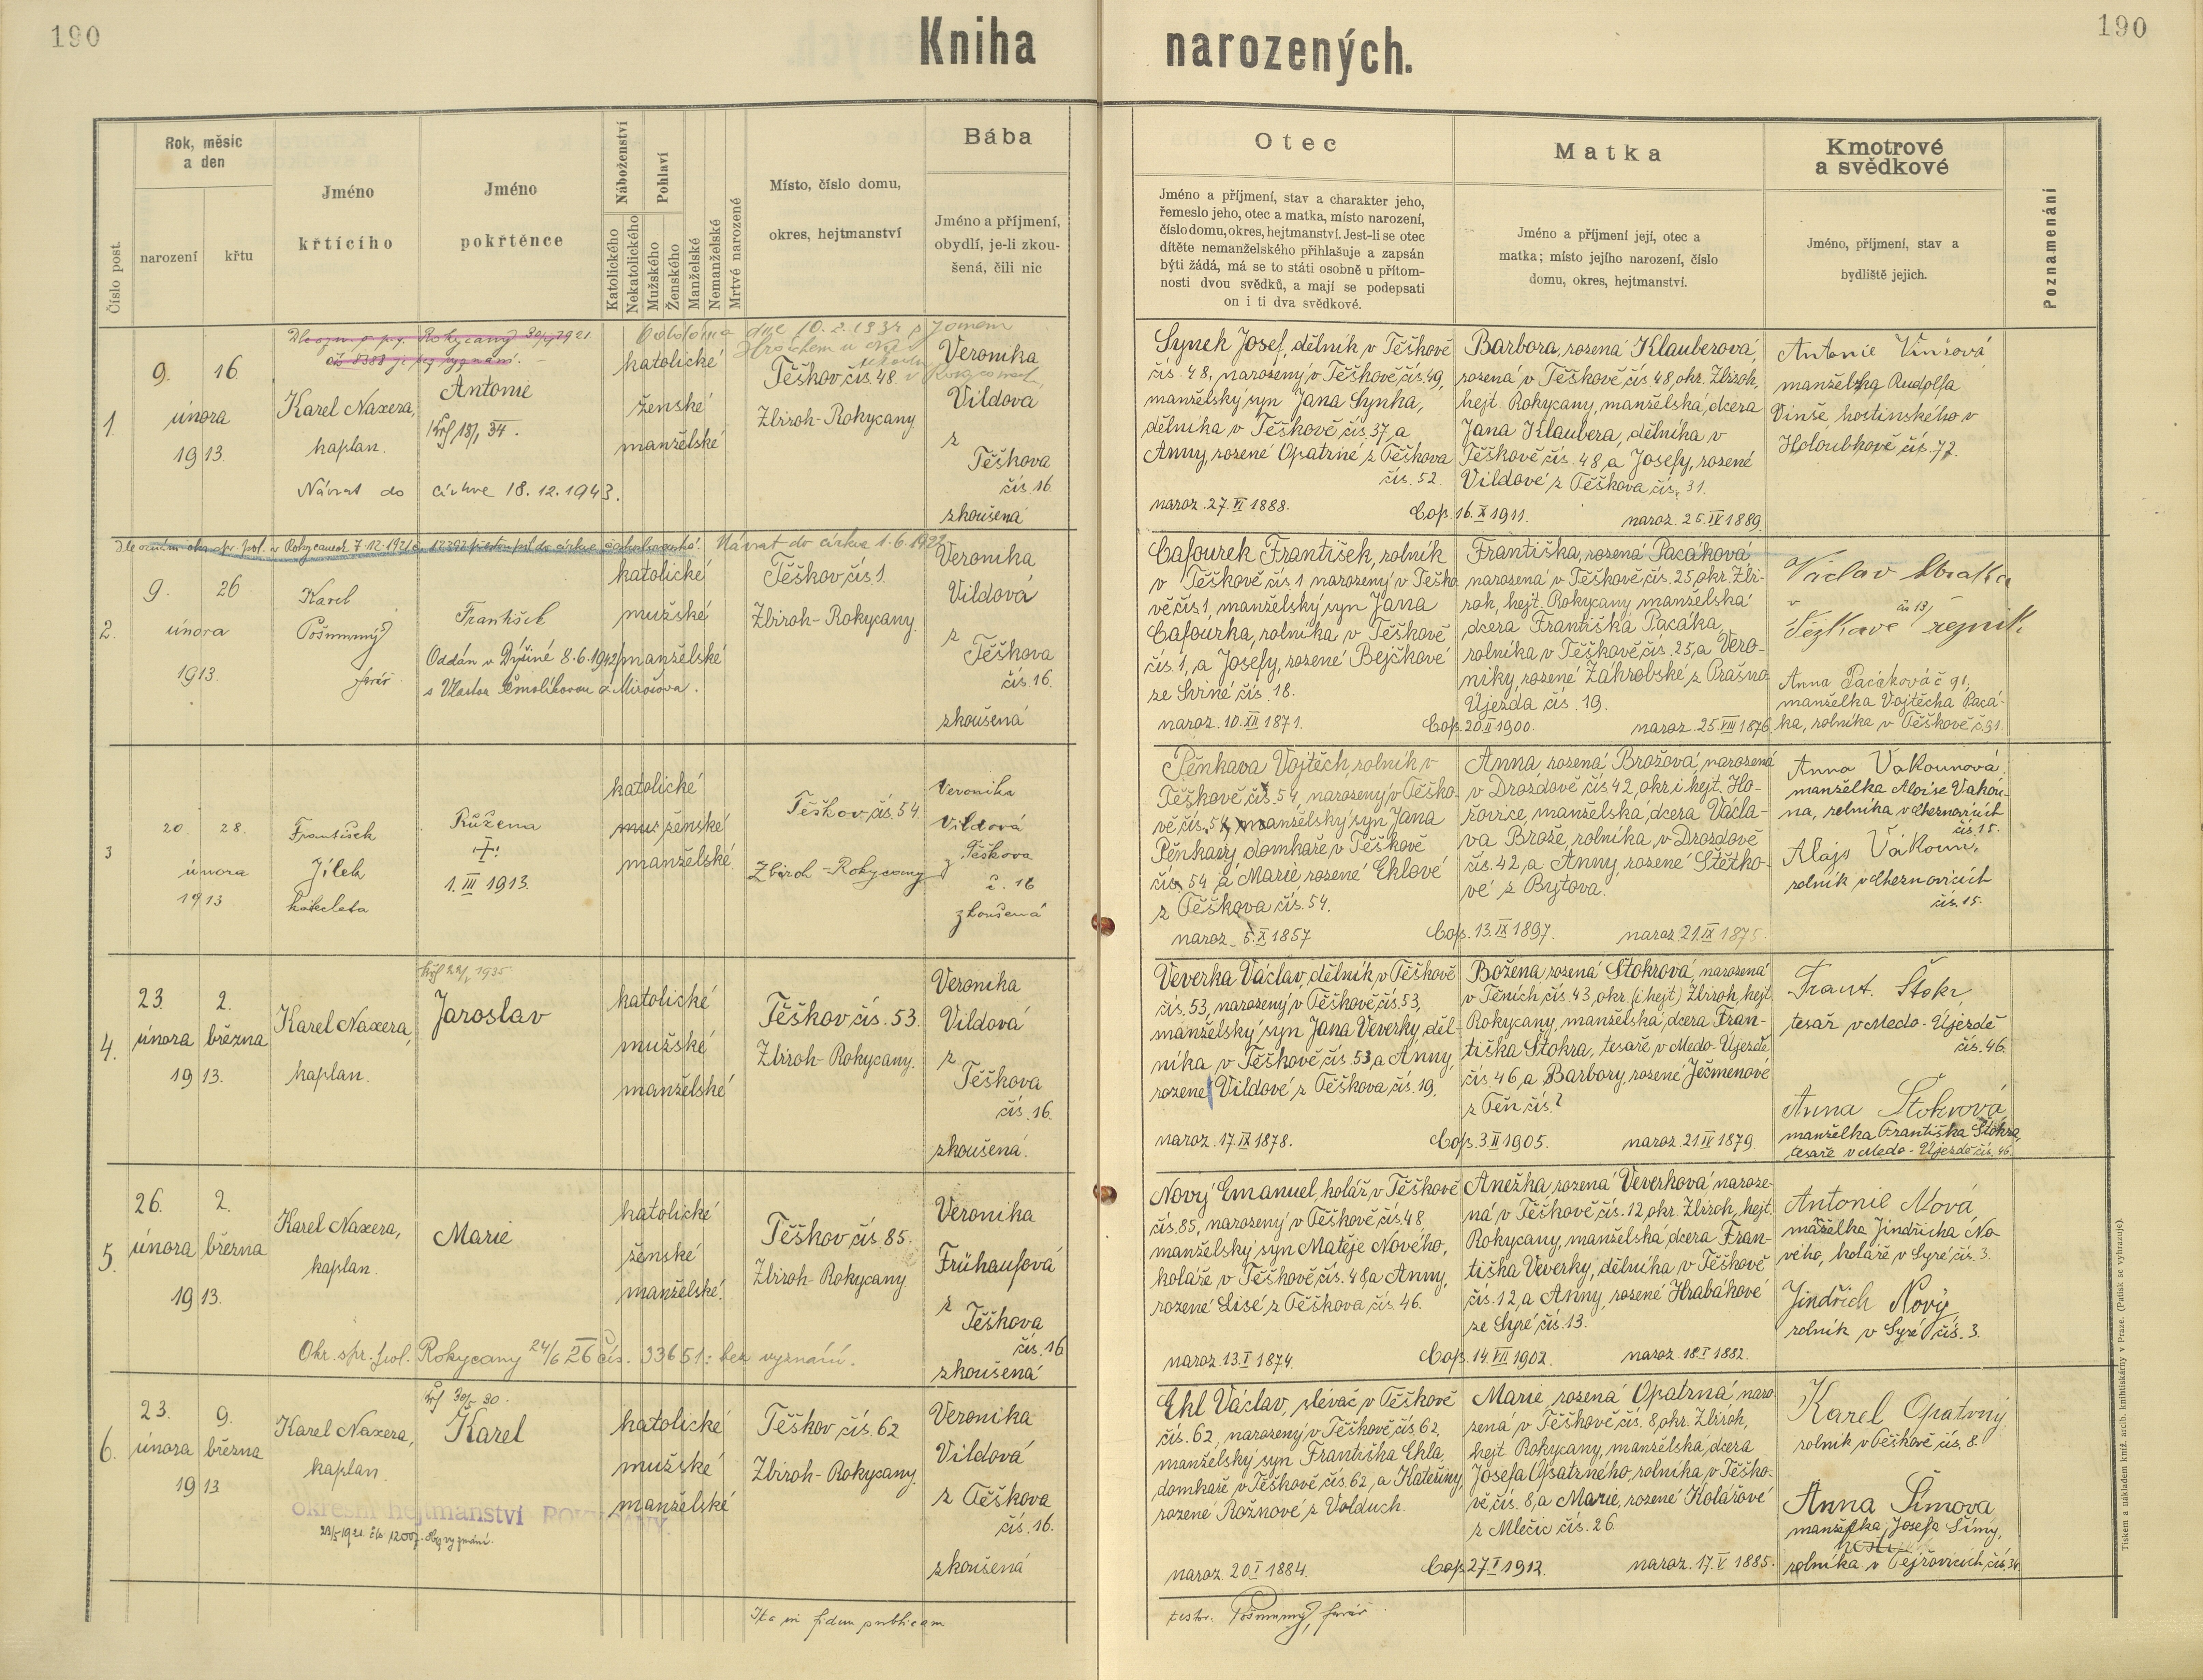 190
190
Kniha narozených.
Číslo post.
Rok, měsíc
a den
narození
křtu
Jméno
křtícího
Jméno
pokřtěnce
Náboženství
Katolického
Nekatolického
Pohlaví
Mužského
Ženského
Manželské
Nemanželské
Mrtvé narozené
Místo, číslo domu,
okres, hejtmanství
Bába
Jméno a příjmení,
obydlí, je-li zkou-
šená, čili nic
Otec
Jméno a příjmení, stav a charakter jeho,
řemeslo jeho, otec a matka, místo narození,
číslo domu, okres, hejtmanství. Jest-li se otec
dítěte nemanželského přihlašuje a zapsán
býti žádá, má se to státi osobně u přítom-
nosti dvou svědků, a mají se podepsati
on i ti dva svědkové.
Matka
Jméno a příjmení její, otec a
matka; místo jejího narození, číslo
domu, okres, hejtmanství.
Kmotrové
a svědkové
Jméno, příjmení, stav a
bydliště jejich.
Poznamenání
1.
9. 16.
února
1913.
Karel Naxera,
kaplan.
Antonie
Návrat do církve 18.12.1943.
katolické
ženské
manželské
Těškov čís. 48.
Zbiroh-Rokycany
Veronika
Vildová
z
Těškova
čís. 16.
zkoušená
Synek Josef, dělník v Těškově
čís. 48, narozený v Těškově čís. 49,
manželský syn Jana Synka,
dělníka v Těškově čís. 37, a
Anny, rozené Opatrné z Těškova
čís. 52.
naroz. 27. VI 1888.
Cop. 16. X 1911.
Barbora, rozená Klauberová,
rozená v Těškově čís. 48, okr. Zbiroh,
hejt. Rokycany, manželská dcera
Jana Klaubera, dělníka v
Těškově čís. 48, a Josefy, rozené
Vildové z Těškova čís. 31.
naroz. 25. IV 1889.
Antonie Vinšová
manželka Rudolfa
Vinše, hostinského v
Holoubkově čís. 72.
2.
Návrat do církve 1.6.1922
9. 26.
února
1913.
Karel
Pošmurný
farář
František
Oddán v Dýšině 8.6.1942
katolické
mužské
manželské
Těškov čís. 1.
Zbiroh-Rokycany.
Veronika
Vildová
z
Těškova
čís. 16.
zkoušená
Cafourek František, rolník
v Těškově čís. 1 narozený v Těško-
vě čís. 1, manželský syn Jana
Cafourka, rolníka v Těškově
čís. 1, a Josefy, rozené Bejčkové
ze Sviné čís. 18.
naroz. 10. XII 1871.
Cop. 20. II 1900.
Františka, rozená Pacáková
narozená v Těškově čís. 25, okr. Zbi-
roh, hejt. Rokycany, manželská
dcera Františka Pacáka,
rolníka v Těškově čís. 25, a Vero-
niky, rozené Zákrobské z Prašno
Újezda čís. 19.
naroz. 25. VIII 1876.
Václav Straka
v čís 13,
Těškově řezník.
Anna Pacáková č 91.
manželka Vojtěcha Pacá-
ka, rolníka v Těškově č. 91.
3
20. 28.
února
1913
František
Jílek
Růžena
1. III 1913.
katolické
ženské
manželské
Těškov čís. 54.
Zbiroh-Rokycany
Veronika
Vildová
z Těškova
č. 16
zkoušená
Pěnkava Vojtěch, rolník v
Těškově čís. 54, narozený v Těško-
vě čís. 54, manželský syn Jana
Pěnkavy, domkaře v Těškově
čís. 54 a Marie rozené Ehlové
z Těškova čís. 54.
naroz. 5. X 1857
Cop. 13. IX 1897.
Anna, rozená Brožová, narozená
v Drozdově čís 42, okr. i hejt. Ho-
řovice, manželská dcera Václa-
va Brože, rolníka v Drozdově
čís. 42, a Anny, rozené Štětko-
vé z Bytova.
naroz. 21. IX 1875.
Anna Vakounová
manželka Aloise Vakou-
na, rolníka v Cheznovicích
čís. 15.
Alojs Vakoun,
rolník v Cheznovicích
čís. 15.
4.
23. 2.
února března
1913.
Karel Naxera,
kaplan.
Jaroslav
katolické
mužské
manželské
Těškov čís. 53.
Zbiroh-Rokycany.
Veronika
Vildová
z
Těškova
čís. 16.
zkoušená.
Veverka Václav, dělník v Těškově
čís. 53, narozený v Těškově čís. 53,
manželský syn Jana Veverky, děl-
níka v Těškově čís. 53, a Anny,
rozené Vildové z Těškova čís. 19.
naroz. 17. IX 1878.
Cop. 3. II 1905.
Božena, rozená Štokrová, narozená
v Těních čís. 43, okr. (i hejt) Zbiroh, hejt.
Rokycany, manželská dcera Fran-
tiška Štokra, tesaře v Medo-Újezdě
čís. 46, a Barbory, rozené Ječmenové
z Těn čís. ?
naroz. 21. IV 1879.
Frant. Štokr,
tesař v Medo-Újezdě
čís. 46.
Anna Štokrová,
manželka Františka Štokra,
tesaře v Medo-Újezdě čís. 46.
5.
26. 2.
února března
1913.
Karel Naxera,
kaplan.
Marie
Okr. spr. pol. Rokycany 24/6 26 čís. 33651: bez vyznání.
katolické
ženské
manželské.
Těškov čís. 85.
Zbiroh-Rokycany
Veronika
Frühaufová
z
Těškova
čís. 16
zkoušená
Nový Emanuel, kolář v Těškově
čís. 85, narozený v Těškově čís. 48,
manželský syn Matěje Nového,
koláře v Těškově čís. 48, a Anny,
rozené Lisé z Těškova čís. 46.
naroz. 13. I 1874.
Cop. 14. VII 1902.
Anežka, rozená Veverková naroze-
ná v Těškově čís. 12, okr. Zbiroh, hejt.
Rokycany, manželská dcera Fran-
tiška Veverky, dělníka v Těškově
čís. 12, a Anny, rozené Hrabákové
ze Syré čís. 13.
naroz. 18. I 1882.
Antonie Nová,
manželka Jindřicha No-
vého, koláře v Syré čís. 3.
Jindřich Nový,
rolník v Syré čís. 3.
6.
23. 9.
února března
1913
Karel Naxera,
kaplan.
Karel
okresní hejtmanství ROKYCANY.
katolické
mužské
manželské
Těškov čís. 62
Zbiroh-Rokycany.
Veronika
Vildová
z Těškova
čís. 16.
zkoušená
Ehl Václav, slévač v Těškově
čís. 62, narozený v Těškově čís. 62,
manželský syn Františka Ehla,
domkaře v Těškově čís. 62, a Kateřiny,
rozené Rožnové z Volduch.
naroz. 20. I 1884.
Cop. 27. I 1912.
Marie, rozená Opatrná naro-
zená v Těškově čís. 8, okr. Zbiroh,
hejt. Rokycany, manželská dcera
Josefa Opatrného, rolníka v Těško-
vě čís. 8, a Marie, rozené Kolářové
z Mlečic čís. 26.
naroz. 17. V 1885.
Karel Opatrný
rolník v Těškově čís. 8.
Anna Šímová,
manželka Josefa Šímy,
rolníka v Tejřovicích čís. 34
Ita in fidem publicam
testor. Pošmurný, farář
Tiskem a nákladem kníž. arcib. knihtiskárny v Praze. (Patisk se vyhrazuje).